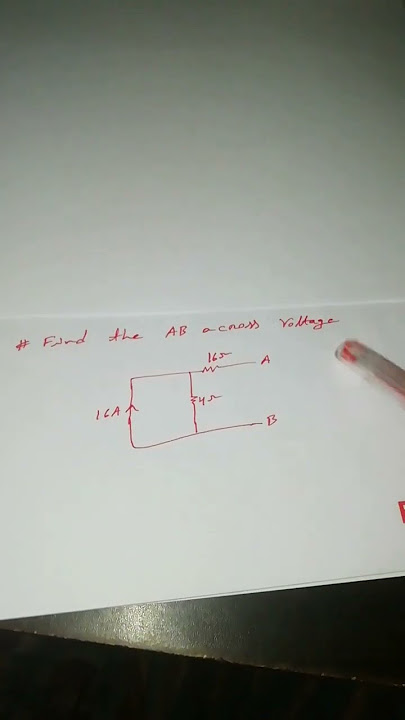 # Find the AB across Voltage
16Ω A
16A 4Ω
B